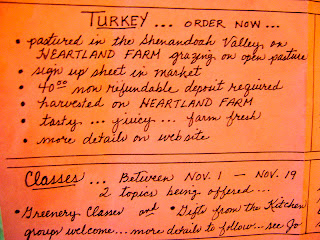 TURKEY ... ORDER NOW ...
• pastured in the Shenandoah Valley on
HEARTLAND FARM grazing on open pasture
• sign up sheet in market
• 40⁰⁰ non refundable deposit required
• harvested on HEARTLAND FARM
• tasty ... juicy ... farm fresh
• more details on website
CLASSES ... Between NOV. 1 — NOV. 19
2 topics being offered ...
• Greenery Classes and • Gifts from the Kitchen
groups welcome... more details to follow... see Jo